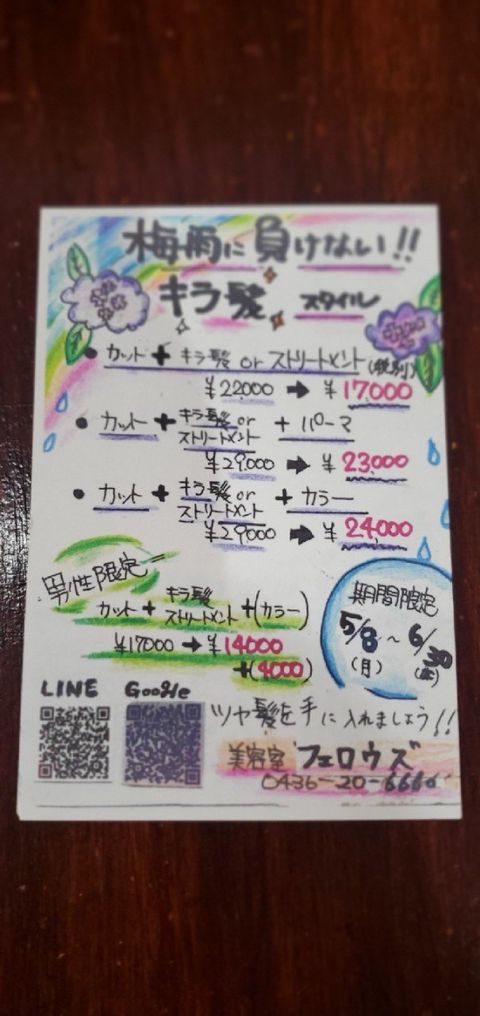 梅雨に負けない!!
キラ髪 スタイル
• カット + キラ髪 or ストリートメント (税別)
¥22000 → ¥17,000
• カット + キラ髪 or ストリートメント + パーマ
¥29,000 → ¥23,000
• カット + キラ髪 or ストリートメント + カラー
¥29,000 → ¥24,000
男性限定
カット + キラ髪 ストリートメント + (カラー)
¥17000 → ¥14000
+(4000)
期間限定
5/8 ~ 6/30
(月) (金)
LINE Google
ツヤ髪を手に入れましょう!!
美容室 フェロウズ
0436-20-6660